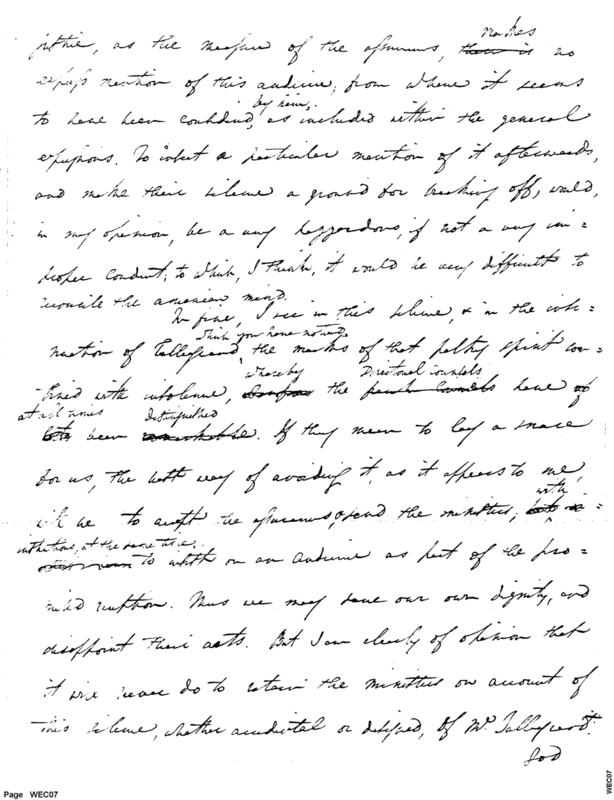 justice, as the measure of the assurances, there is makes no
express mention of this audience; from where it seems
to have been considered by him, as included within the general
expressions. To insist a particular mention of it afterwards,
and make their silence a ground for breaking off, would,
in my opinion, be a very hazzardous, if not a very im=
proper conduct; to which, I think, it would be very difficult to
reconcile the american mind.
In fine, I see in this silence, & in the insi=
nuation of Talleyrand, which you have noticed the marks of that paltry spirit com=
bined with insolence, whereby the Directorial councils have
at all times been distinguished. If they mean to lay a snare
for us, the best way of avoiding it, as it appears to me,
will be to accept the assurances, & send the ministers, with in=
structions, at the same time, to insist on an Audience as part of the pro=
mised reception. Thus we may save our own dignity, and
disappoint their arts. But I am clearly of opinion that
it will never do to retain the ministers on account of
this silence, whether accidental or designed, of Mr. Talleyrand.
God
Page WEC07
WEC07